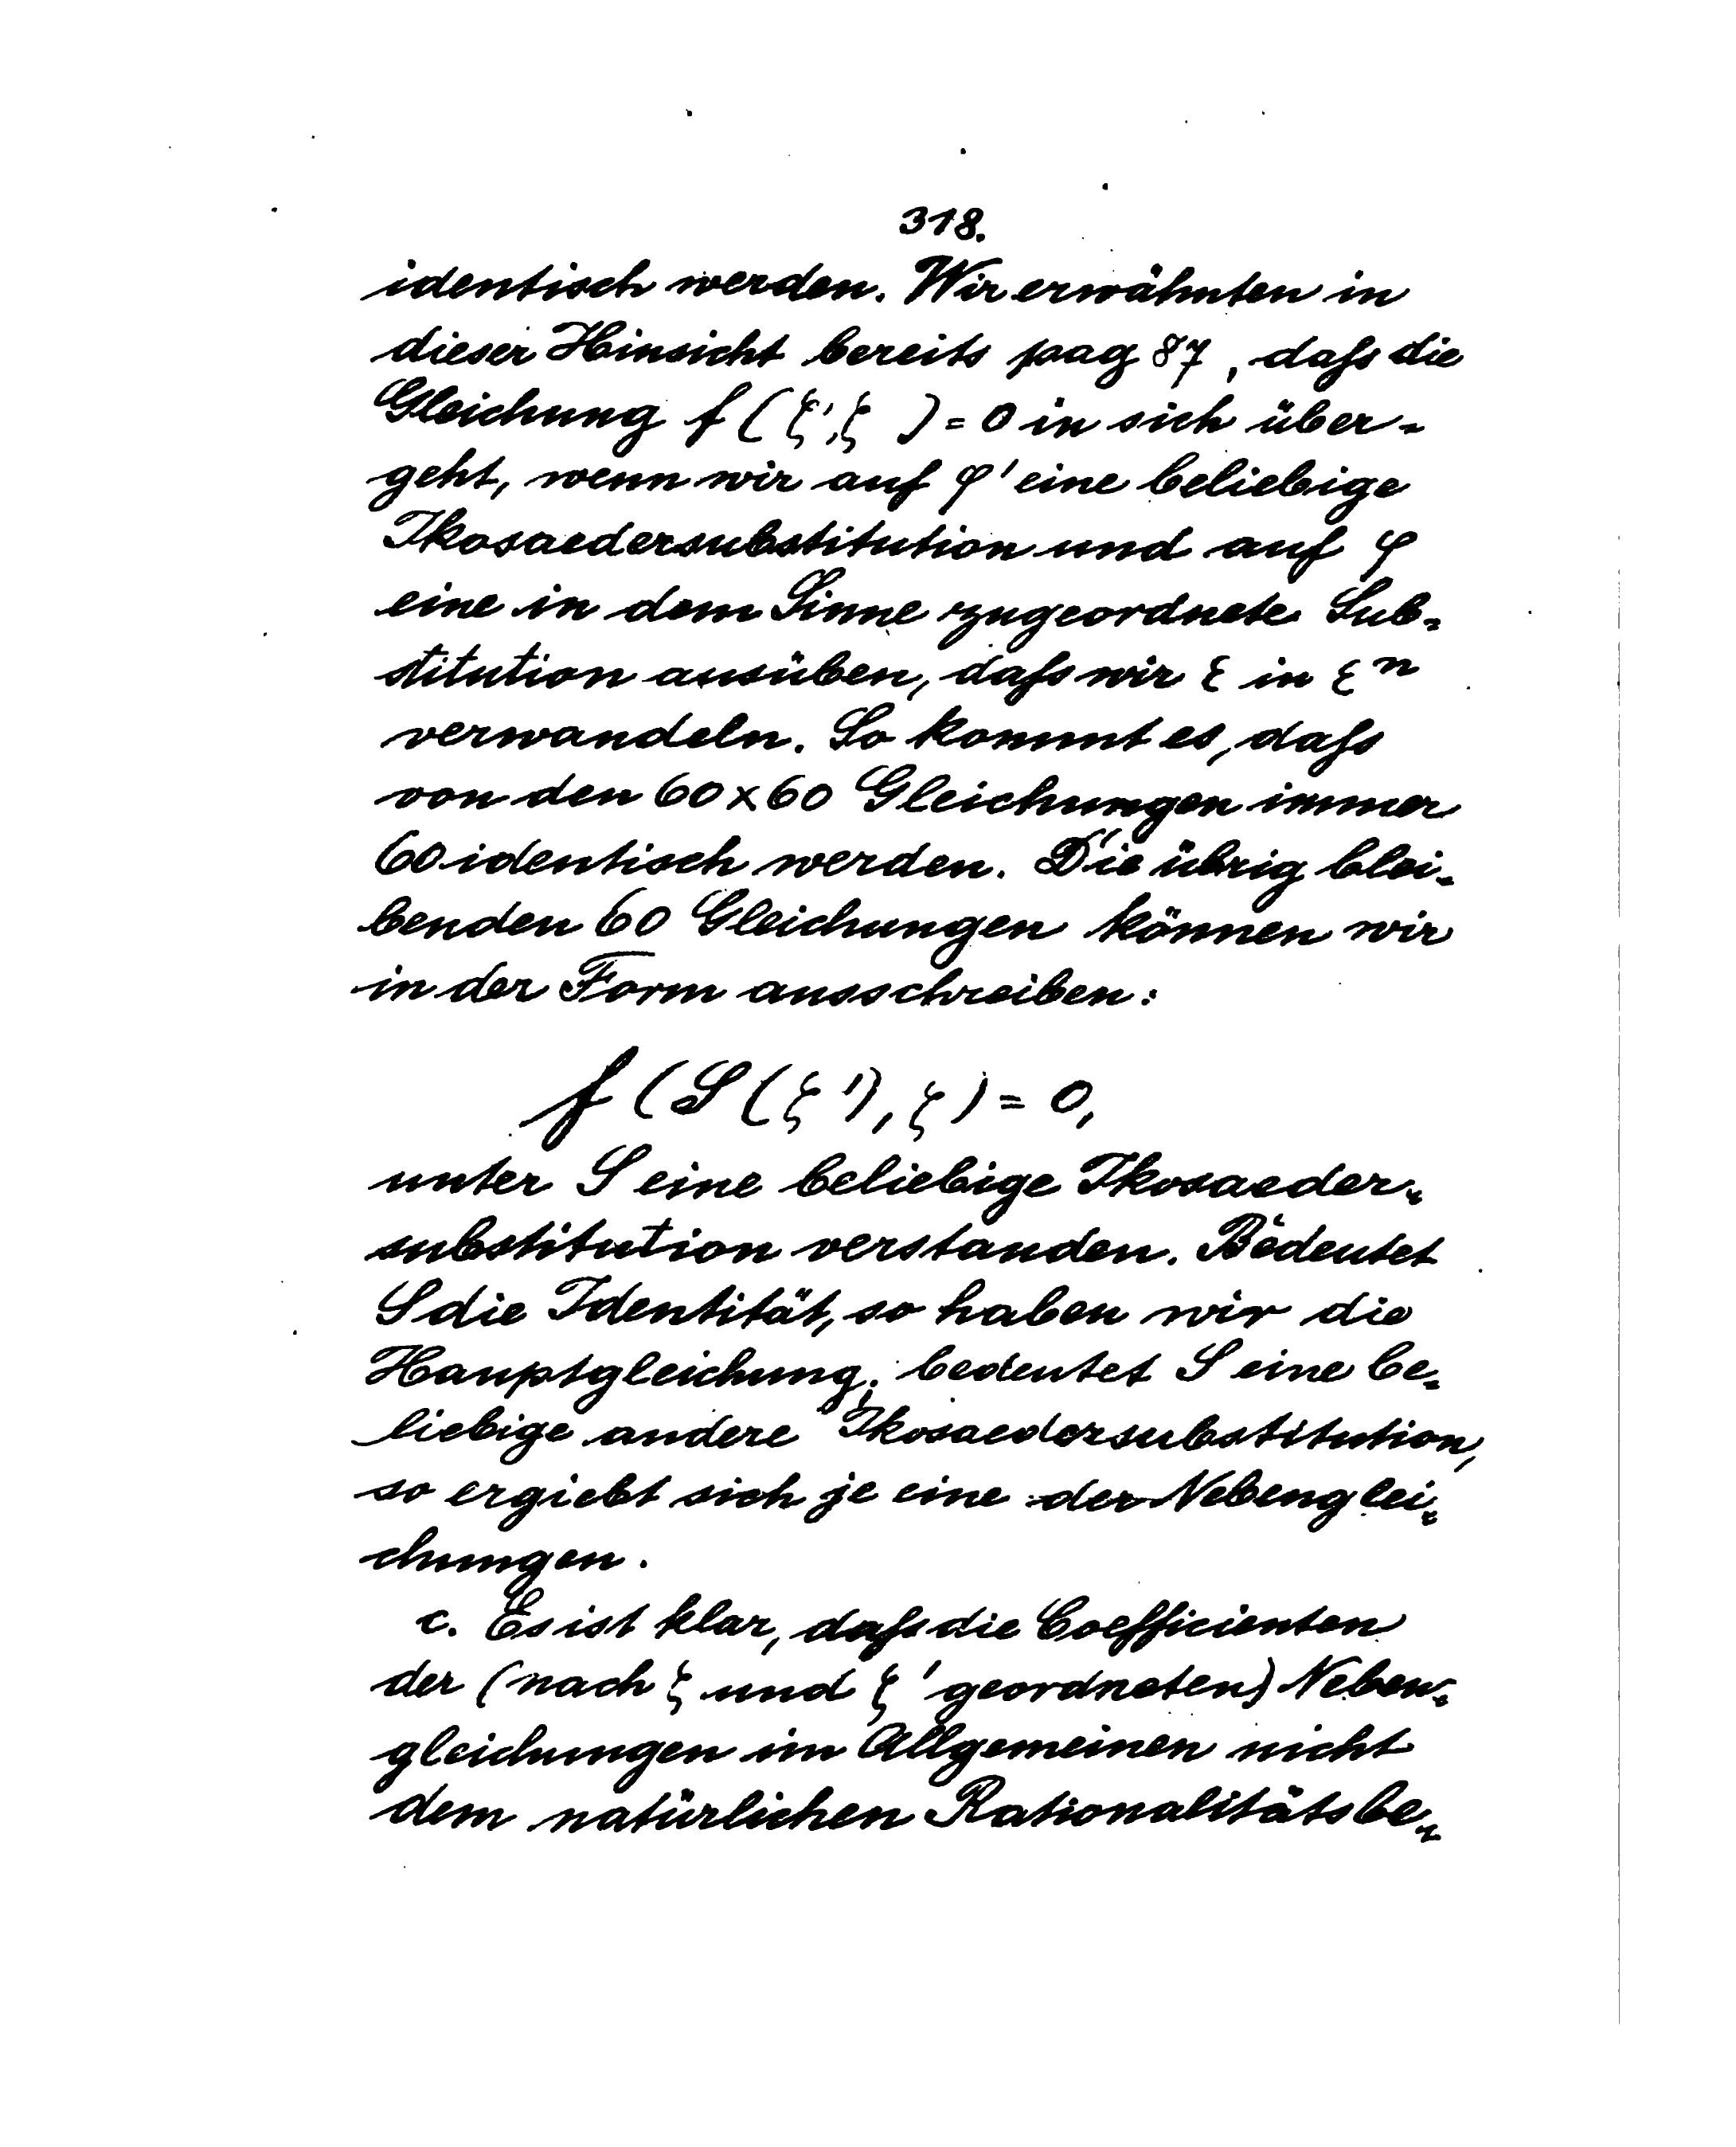 318.
identisch werden. Wir erwähnten in
dieser Hinsicht bereits pag 87, daſs die
Gleichung f(ξ',ξ ) = 0 in sich über-
geht, wenn wir auf φ' eine beliebige
Ikosaedersubstitution und auf φ
eine in dem Sinne zugeordnete Sub-
stitution ausüben, daſs wir ε in ε^n
verwandeln. So kommt es, daſs
von den 60×60 Gleichungen immer
60 identisch werden. Die übrig blei-
benden 60 Gleichungen können wir
in der Form ausschreiben:
f(S(ξ'), ξ) = 0,
unter S eine beliebige Ikosaeder-
substitution verstanden. Bedeutet
S die Identität, so haben wir die
Hauptgleichung; bedeutet S eine be-
liebige andere Ikosaedersubstitution,
so ergiebt sich je eine der Nebenglei-
chungen.
c. Es ist klar, daſs die Coefficienten
der (nach ξ und ξ' geordneten) Neben-
gleichungen im Allgemeinen nicht
dem natürlichen Rationalitätsbe-